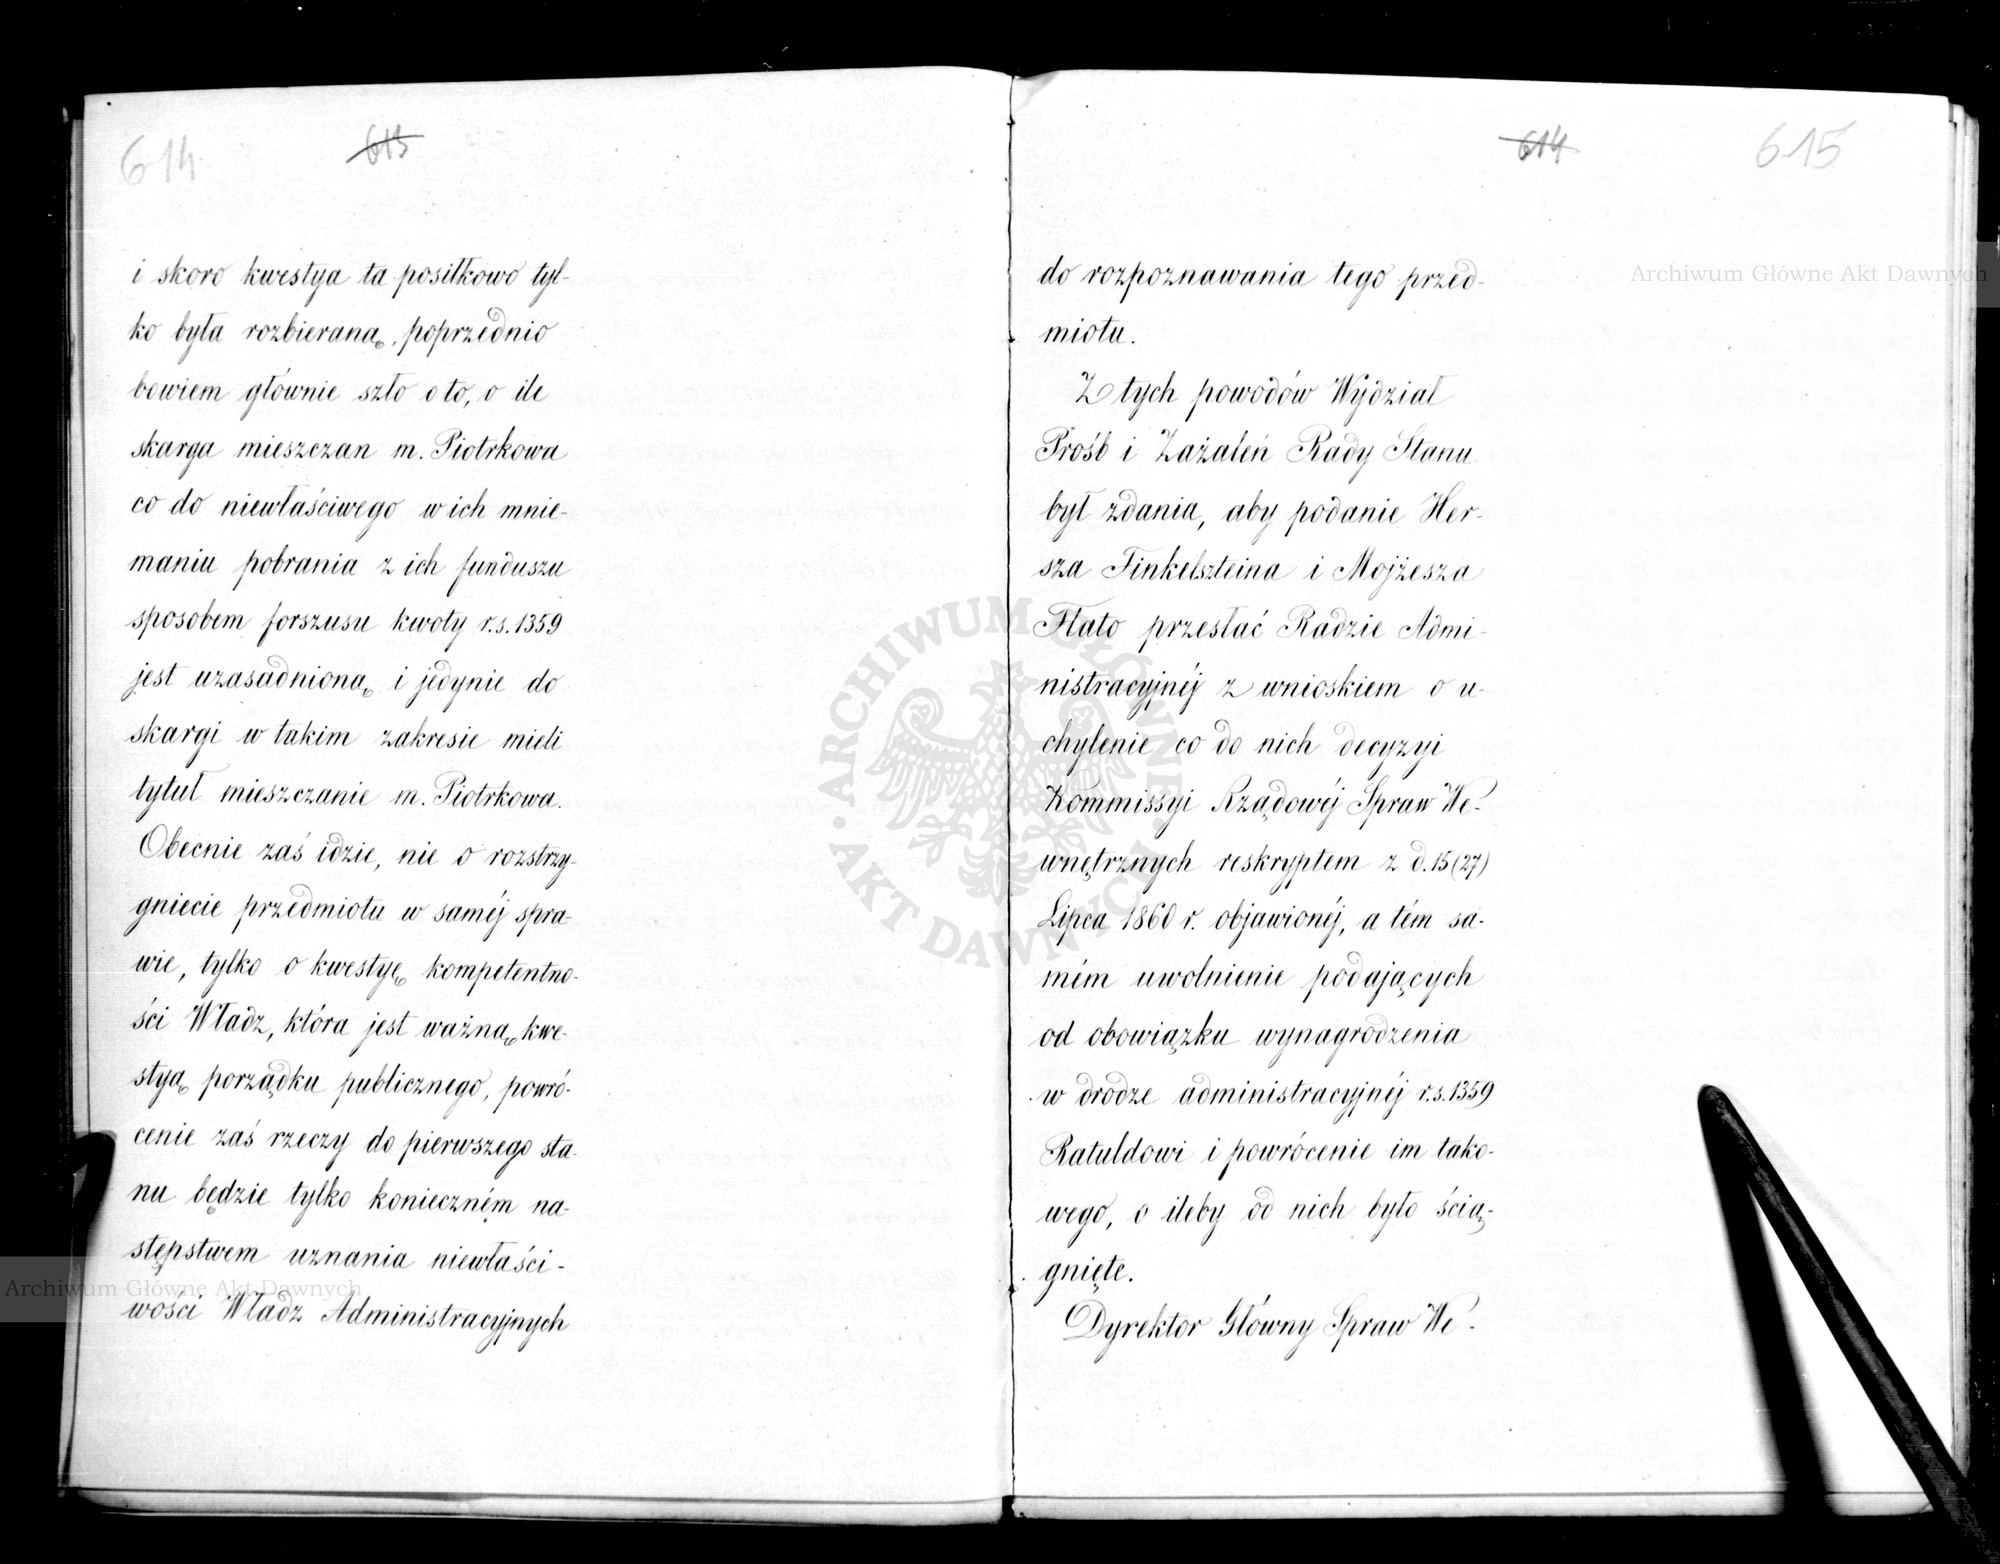 614
613
i skoro kwestya ta posiłkowo tyl-
ko była rozbieraną, poprzednio
bowiem głównie szło o to, o ile
skarga mieszczan m. Piotrkowa
co do niewłaściwego w ich mnie-
maniu pobrania z ich funduszu
sposobem forszusu kwoty r.s. 1359
jest uzasadnioną i jedynie do
skargi w takim zakresie mieli
tytuł mieszczanie m. Piotrkowa.
Obecnie zaś idzie, nie o rozstrzy-
gniecie przedmiotu w saméj spra-
wie, tylko o kwestyę kompetentno-
ści Władz, która jest ważną kwe-
styą porządku publicznego, powró-
cenie zaś rzeczy do pierwszego sta-
nu będzie tylko konieczném na-
stępstwem uznania niewłaści-
wości Władz Administracyjnych
614
615
do rozpoznawania tego przed-
miotu.
Z tych powodów Wydział
Prośb i Zażaleń Rady Stanu
był zdania, aby podanie Her-
sza Finkelszteina i Mojżesza
Flato przesłać Radzie Admi-
nistracyjnéj z wnioskiem o u-
chylenie co do nich decyzyi
Kommissyi Rządowéj Spraw We-
wnętrznych reskryptem z d. 15 (27)
Lipca 1860 r. objawionéj, a tém sa-
mém uwolnienie podających
od obowiązku wynagrodzenia
w drodze administracyjnéj r.s. 1359
Ratuldowi i powrócenie im tako-
wego, o ileby od nich było ścią-
gnięte.
Dyrektor Główny Spraw We-
Archiwum Główne Akt Dawnych
Archiwum Główne Akt Dawnych
ARCHIWUM GŁÓWNE AKT DAWNYCH